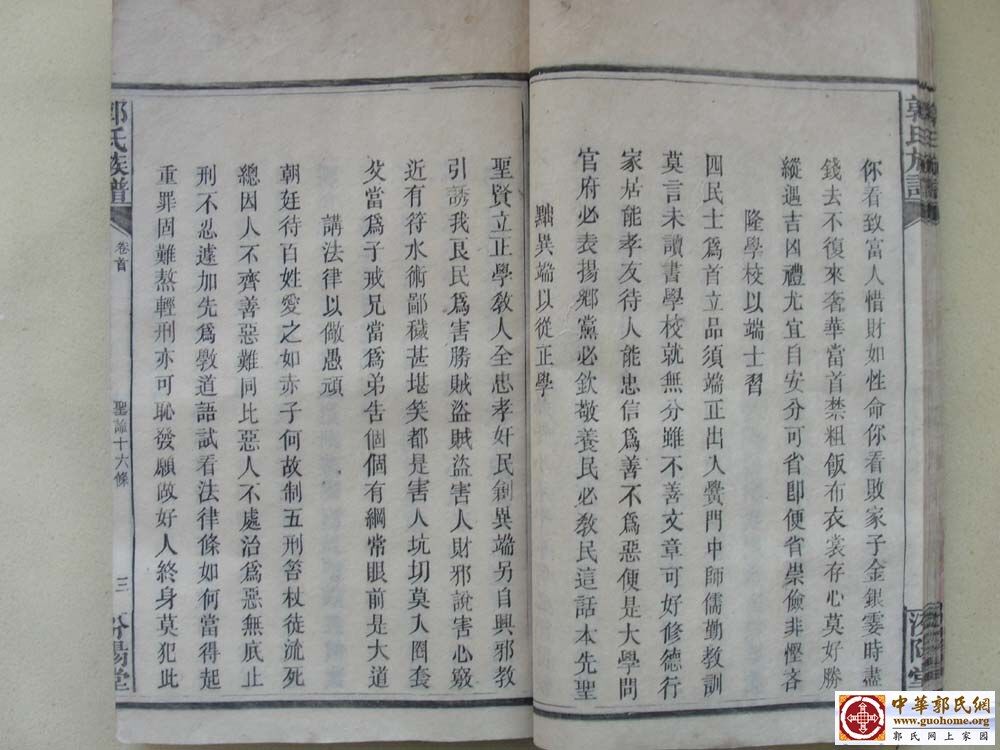 你看致富人惜財如性命你看敗家子金銀霎時盡
錢去不復來奢華當首禁粗飯布衣裳存心莫好勝
縱遇吉凶禮尤宜自安分可省即便省崇儉非慳吝
隆學校以端士習
四民士爲首立品須端正出入黌門中師儒勤教訓
莫言未讀書學校就無分雖不善文章可好修德行
家居能孝友待人能忠信爲善不爲惡便是大學問
官府必表揚鄉黨必欽敬養民必教民這話本先聖
黜異端以從正學
聖賢立正學教人全忠孝奸民創異端另自興邪教
引誘我良民爲害勝賊盜賊盜害人財邪說害心竅
近有符水術鄙穢甚堪笑都是害人坑切莫入圈套
父當爲子戒兄當爲弟告個個有綱常眼前是大道
講法律以儆愚頑
朝廷待百姓愛之如赤子何故制五刑笞杖徒流死
總因人不齊善惡難同比惡人不處治爲惡無底止
刑不忍遽加先爲教道語試看法律條如何當得起
重罪固難熬輕刑亦可恥發願做好人終身莫犯此
郭氏族譜
卷首
聖諭十六條
三
汾陽堂
中華郭氏網
www.guohome.org
郭氏網上家園